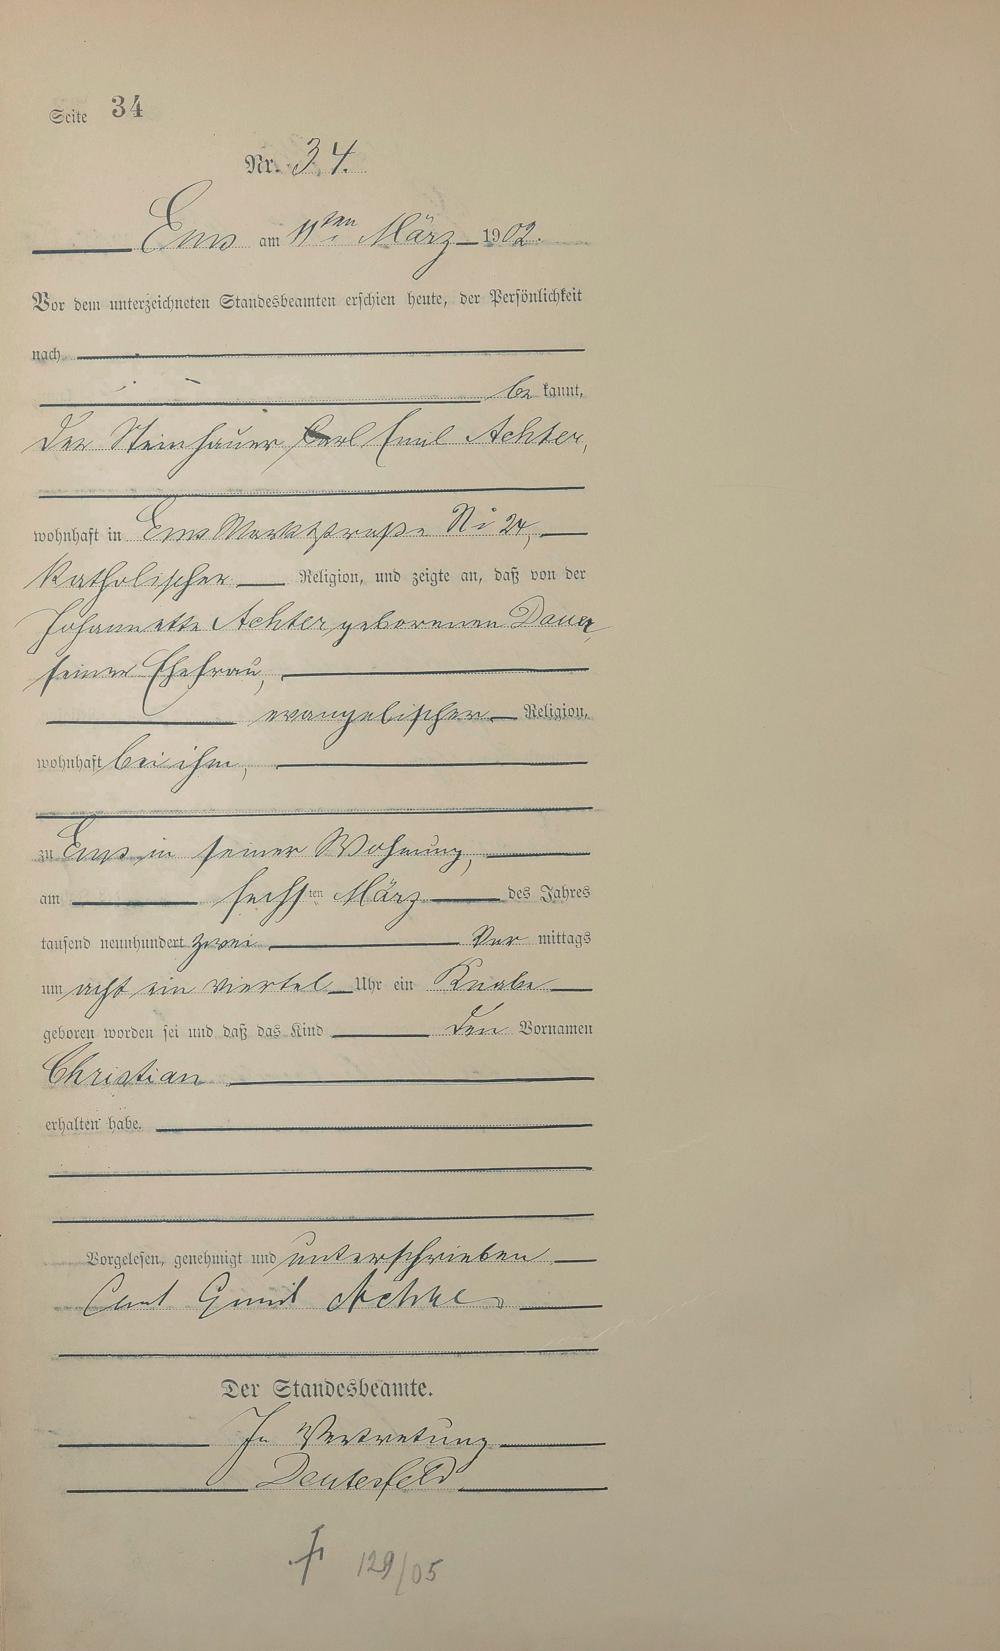 Seite 34
Nr. 34.
Ems am 11ten März 1902.
Vor dem unterzeichneten Standesbeamten erschien heute, der Persönlichkeit
nach
be kannt,
der Steinhauer Carl Emil Achter,
wohnhaft in Ems Marktstraße No 24,
katholischer Religion, und zeigte an, daß von der
Johannette Achter geborenen Dauer,
seiner Ehefrau,
evangelischer Religion,
wohnhaft bei ihm,
zu Ems in seiner Wohnung,
am sechsten März des Jahres
tausend neunhundert zwei Vor mittags
um acht ein viertel Uhr ein Knabe
geboren worden sei und daß das Kind den Vornamen
Christian
erhalten habe.
Vorgelesen, genehmigt und unterschrieben
Carl Emil Achter
Der Standesbeamte.
In Vertretung
† 129/05